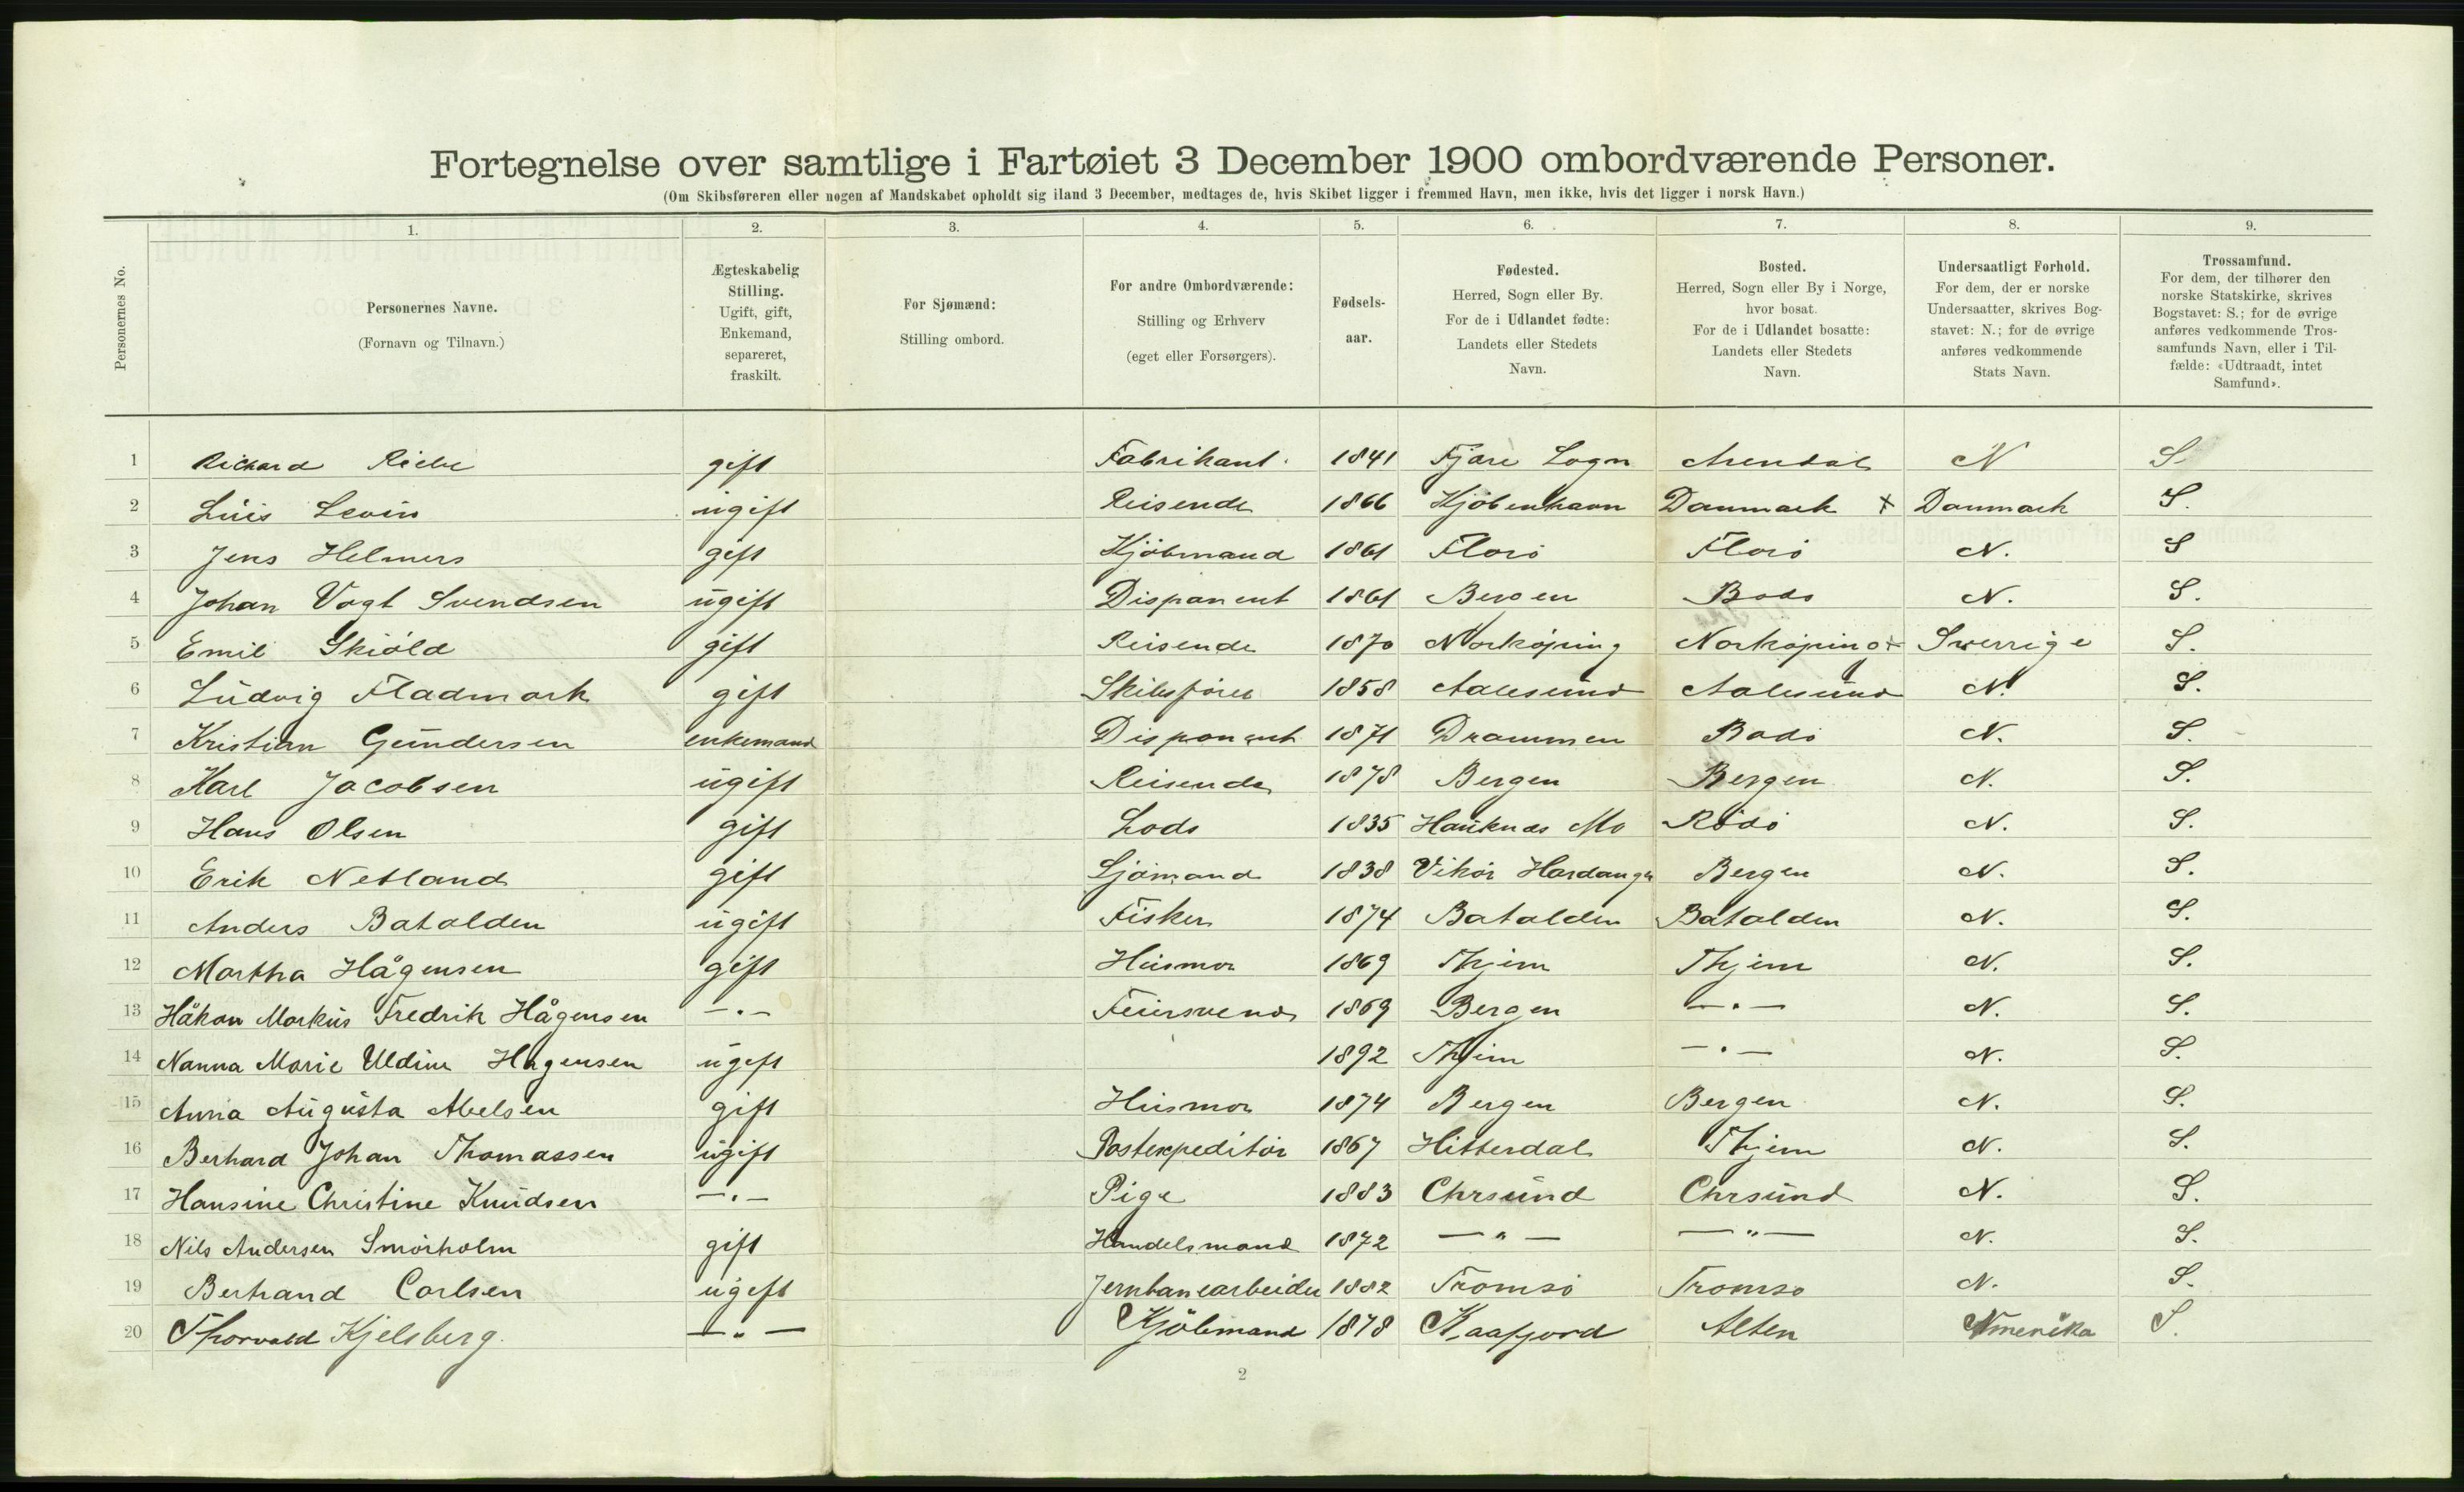 Fortegnelse over samtlige i Fartøiet 3 December 1900 ombordværende Personer.
(Om Skibsføreren eller nogen af Mandskabet opholdt sig iland 3 December, medtages de, hvis Skibet ligger i fremmed Havn, men ikke, hvis det ligger i norsk Havn.)
Personernes No.
1.
Personernes Navne.
(Fornavn og Tilnavn.)
2.
Ægteskabelig
Stilling.
Ugift, gift,
Enkemand,
separeret,
fraskilt.
3.
For Sjømænd:
Stilling ombord.
4.
For andre Ombordværende:
Stilling og Erhverv
(eget eller Forsørgers).
5.
Fødsels-
aar.
6.
Fødested.
Herred, Sogn eller By.
For de i Udlandet fødte:
Landets eller Stedets
Navn.
7.
Bosted.
Herred, Sogn eller By i Norge,
hvor bosat.
For de i Udlandet bosatte:
Landets eller Stedets
Navn.
8.
Undersaatligt Forhold.
For dem, der er norske
Undersaatter, skrives Bog-
stavet: N.; for de øvrige
anføres vedkommende
Stats Navn.
9.
Trossamfund.
For dem, der tilhører den
norske Statskirke, skrives
Bogstavet: S.; for de øvrige
anføres vedkommende Tros-
samfunds Navn, eller i Til-
fælde: «Udtraadt, intet
Samfund».
1 Rickard gift Fabrikant. 1841 Fjære Sogn Arendal N S.
2 Luis Levin ugift Reisende 1866 Kjöbenhavn Danmark + Danmark S.
3 Jens Helmers gift Kjöbmand 1861 Florö Florö N. S
4 Johan Vogt Svendsen ugift Disponent 1861 Bergen Bodö N. S.
5 Emil Skiöld gift Reisende 1870 Norköping Norköping + Sverrige S.
6 Ludvig Fladmark gift Skibsförer 1858 Aalesund Aalesund N. S.
7 Kristian Gundersen enkemand Disponent 1871 Drammen Bodö N. S.
8 Karl Jacobsen ugift Reisende 1878 Bergen Bergen N. S.
9 Hans Olsen gift Lods 1835 Hauknes Mo Rödö N. S.
10 Erik Netland gift Sjömand 1838 Vikör Hardanger Bergen N. S.
11 Anders Batalden ugift Fisker 1874 Batalden Batalden N. S.
12 Martha Hågensen gift Husmor 1869 Thjem Thjem N. S.
13 Håkon Markus Fredrik Hågensen —"— Feiersvend 1869 Bergen —"— N. S.
14 Nanna Marie Uldine Hagensen ugift 1892 Thjem —"— N. S.
15 Anna Augusta Abelsen gift Husmor 1874 Bergen Bergen N. S.
16 Berhard Johan Thomassen ugift Postexpeditör 1867 Hitterdal Thjem N. S.
17 Hansine Christine Knudsen —"— Pige 1883 Chrsund Chrsund N. S.
18 Nils Andersen Smörholm gift Handelsmand 1872 —"— —"— N. S.
19 Bertrand Carlsen ugift Jernbanearbeider 1882 Tromsö Tromsö N. S.
20 Thorvald Kjelsberg. —"— Kjöbmand 1878 Kaafjord Alten Amerika S.
2